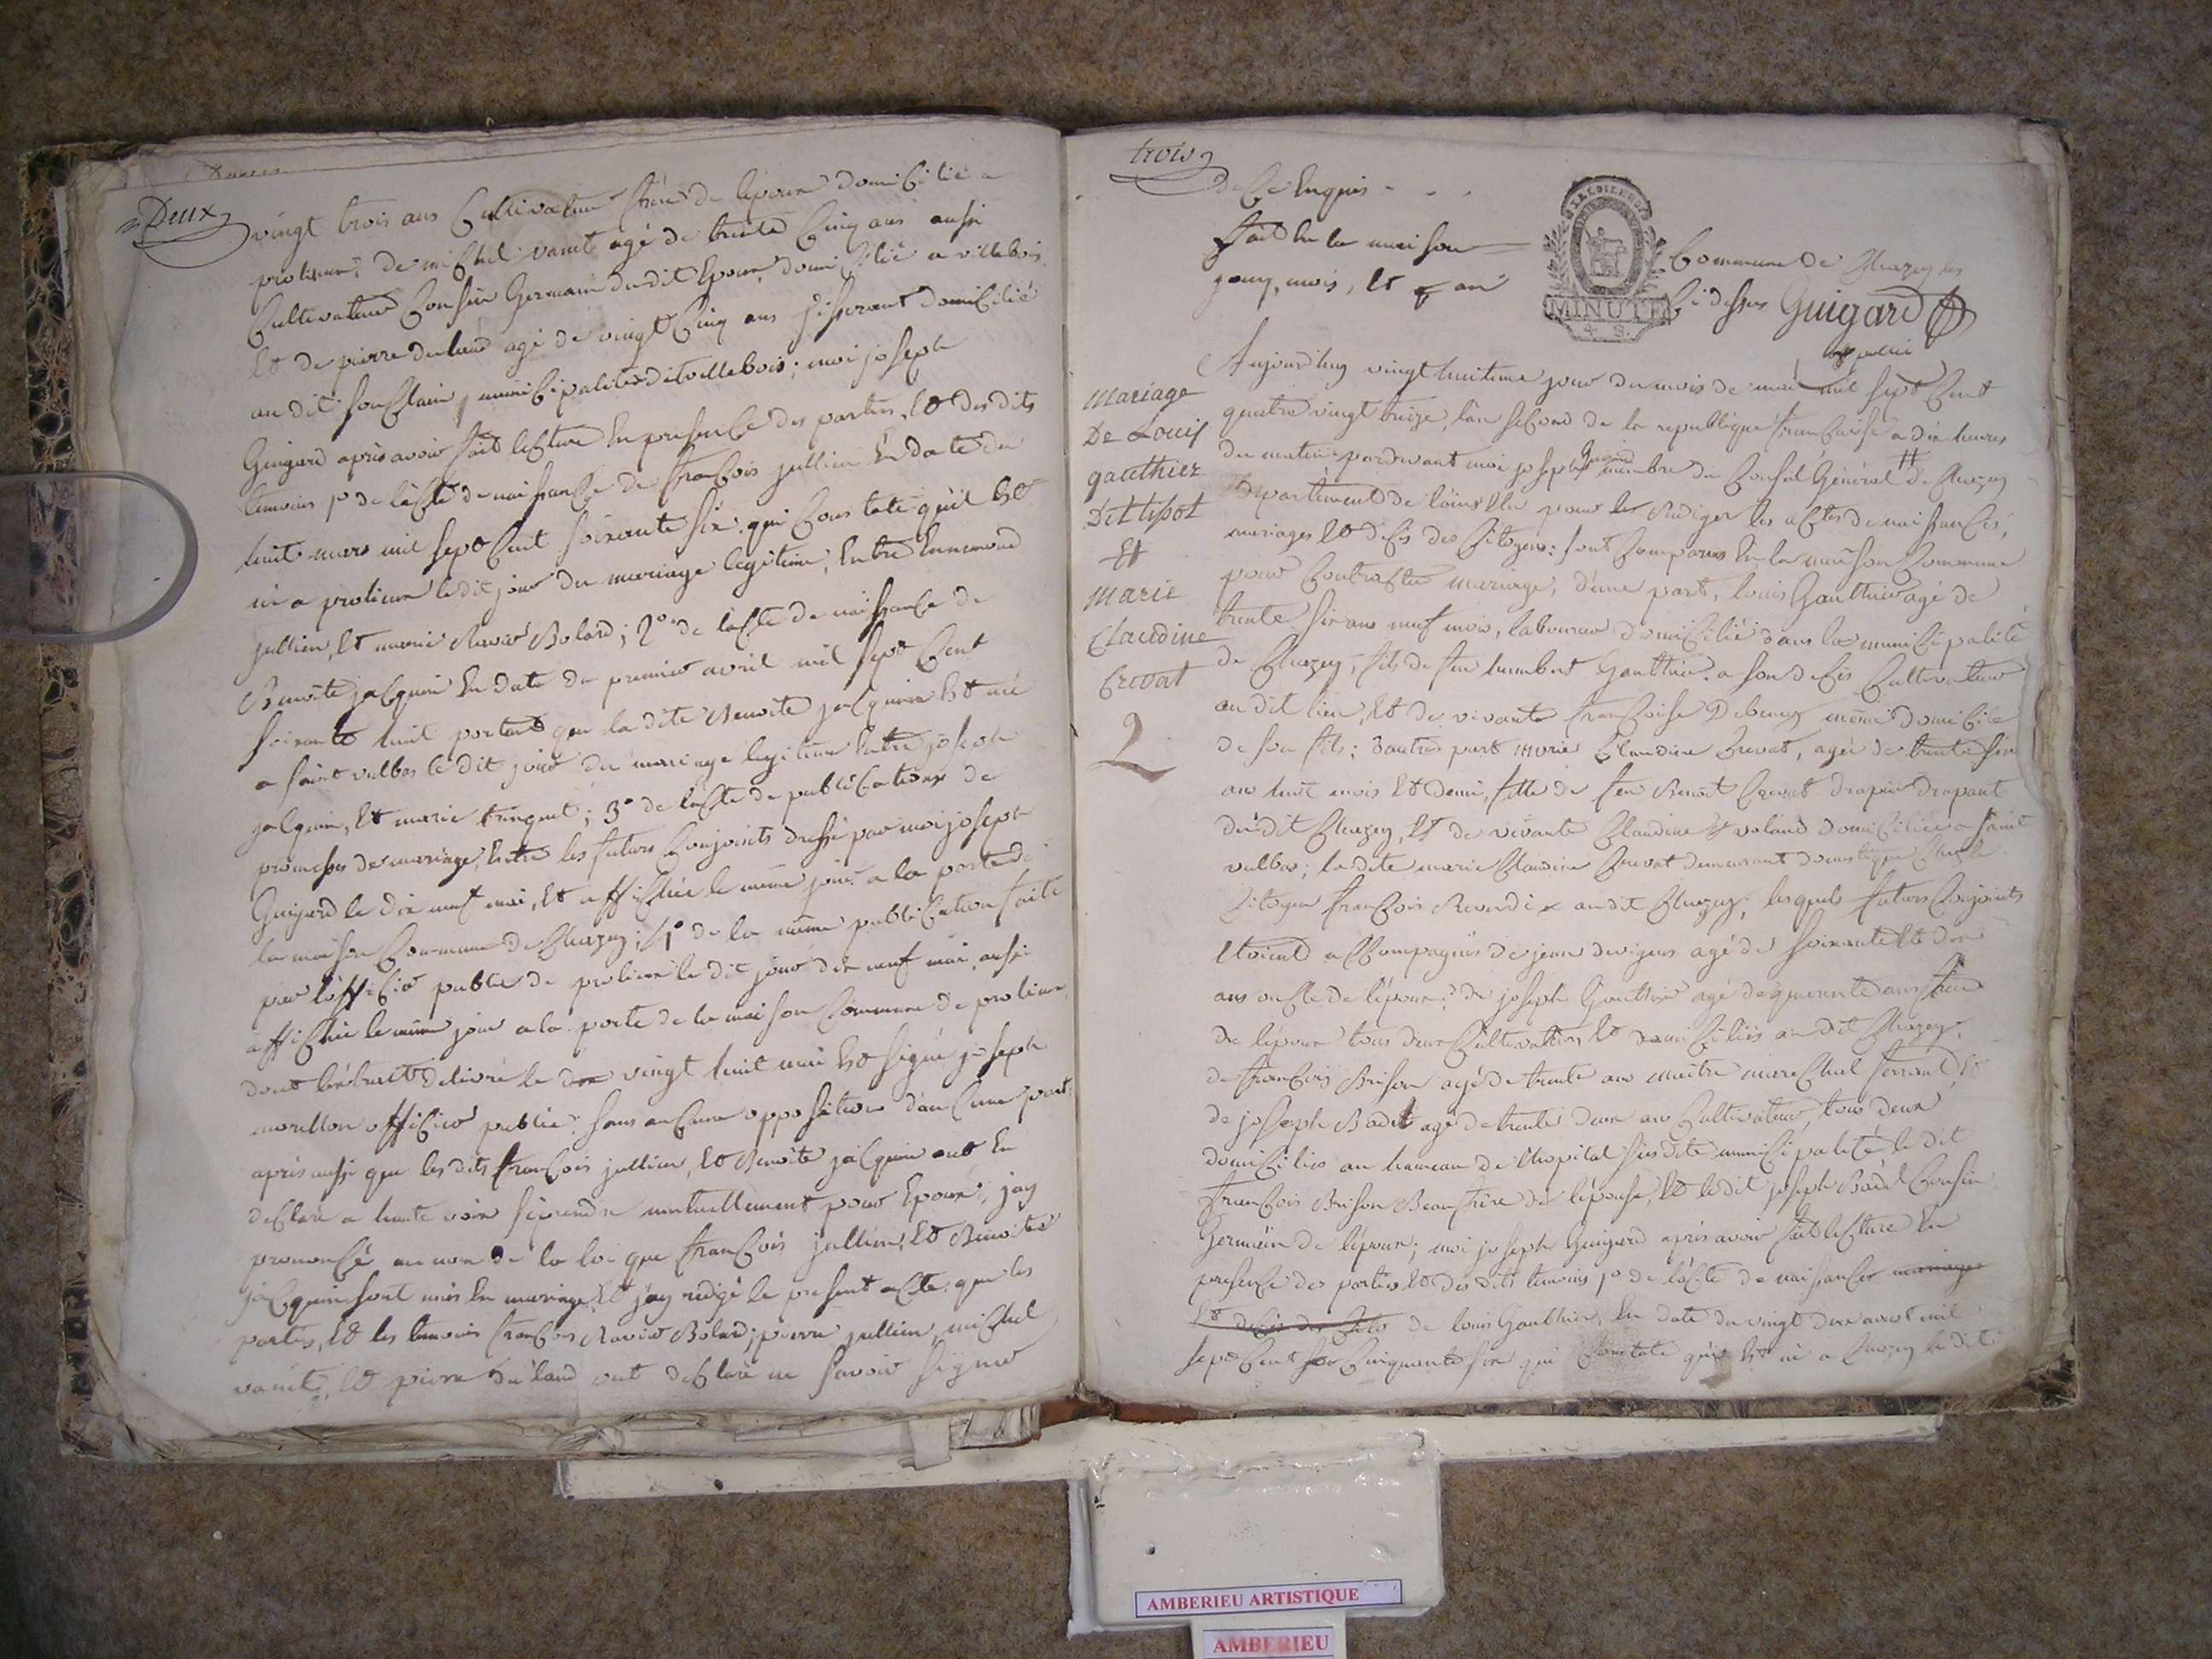 Deux
vingt trois ans Cultivateur frère de lepoux domicilié a
prolieux, de michel vanet agé de trente Cinq ans aussi
Cultivateur Cousin Germain du dit Epoux, domicilié a villebois
Et de pierre duland agé de vingt Cinq ans Tisserant domicilié
au dit Souclain, municipalité de villebois; moi joseph
Guigard après avoir fait lecture En presence des parties, Et des dits
temoins 1º de l'acte de naissance de françois jullien En date du
huit mars mil sept Cent soixante six qui Constate qu'il Est
né a prolieux le dit jour du mariage legitime, Entre Ennemond
jullien, Et marie Ravier Bolard; 2º de l'acte de naissance de
Benoîte jacquin En date du premier avril mil sept Cent
soixante huit portant que la dite Benoite jacquin Est née
a saint vulbas le dit jour du mariage legitime Entre joseph
jacquin, Et marie trinquet; 3º de l'acte de publication de
promesses de mariage, Entre les futurs Conjoints dressé par moi joseph
Guigard le dix neuf mai, Et affichée le même jour a la porte de
la maison Commune de Chazey; 4º de la même publication faite
par l'officier public de prolieux le dit jour dix neuf mai, aussi
affichée le même jour a la porte de la maison Commune de prolieux
dont l'extrait delivré le vingt huit mai Est signé joseph
morellon officier public: sans aucune opposition d'aucune part:
après aussi que les dits françois jullien, Et Benoîte jacquin ont En
declaré a haute voix se prendre mutuellement pour Epoux, jay
prononcé au nom de la loi que françois jullien, Et Benoîte
jacquin sont unis En mariage, Et jay redigé le present acte que les
parties, Et les temoins françois Ravier Bolard, pierre jullien, michel
vanet, Et pierre duland ont declaré ne savoir signer
trois
de Ce Enquis - - -
Fait En la maison
jour, mois, Et an
MINUTE
4. S.
Commune de Chazey les
Ci dessus Guigard
public
Mariage
De Louis
gauthier
Dit
Et
marie
Claudine
Crevat
2
Aujourdhuy vingt huitième jour du mois de mai mil sept Cent
quatre vingt treize, l'an second de la republique française a dix heures
du matin pardevant moi joseph Guigard membre du Conseil Général de Chazey
departement de l'ain Elu pour rediger les actes de naissances,
mariages Et décès des Citoyens: sont Comparus En la maison Commune
pour Contracter mariage, d'une part, louis Gauthier agé de
trente six ans neuf mois, laboureur domicilié dans la municipalité
de Chazey, fils de feu humbert Gauthier a son decès Cultivateur
au dit lieu, Et de vivante françoise même domicile
de son fils: d'autre part marie Claudine Crevat, agée de trente six
ans huit mois Et demi, fille de feu Benoit Crevat drapier drapant
du dit Chazey, Et de vivante Claudine voland domiciliée a saint
vulbas; la dite marie Claudine Crevat demeurant domestique Chez le
Citoyen françois au dit Chazey; lesquels futurs Conjoints
Etoient accompagnés de jean agé de soixante Et dix
ans oncle de l'epoux; de joseph Gauthier agé de quarante ans frère
de lépoux tous deux Cultivateurs, Et domiciliés au dit Chazey;
de françois Brison agé de trente ans maitre marechal ferrant, Et
de joseph Badet agé de trente deux ans Cultivateur, tous deux
domiciliés au hameau de l'hopital susdite municipalité le dit
françois Brison Beaufrère de l'épouse, Et le dit joseph Badet Cousin
Germain de lépoux; moi joseph Guigard après avoir fait lecture En
presence des parties Et des dits temoins 1º de l'acte de naissance mariages
Et décès des Cito de louis Gauthier En date du vingt deux aoust mil
sept Cent Cinquante six qui Constate qu'il Est né a Chazey le dit
AMBERIEU ARTISTIQUE
AMBERIEU